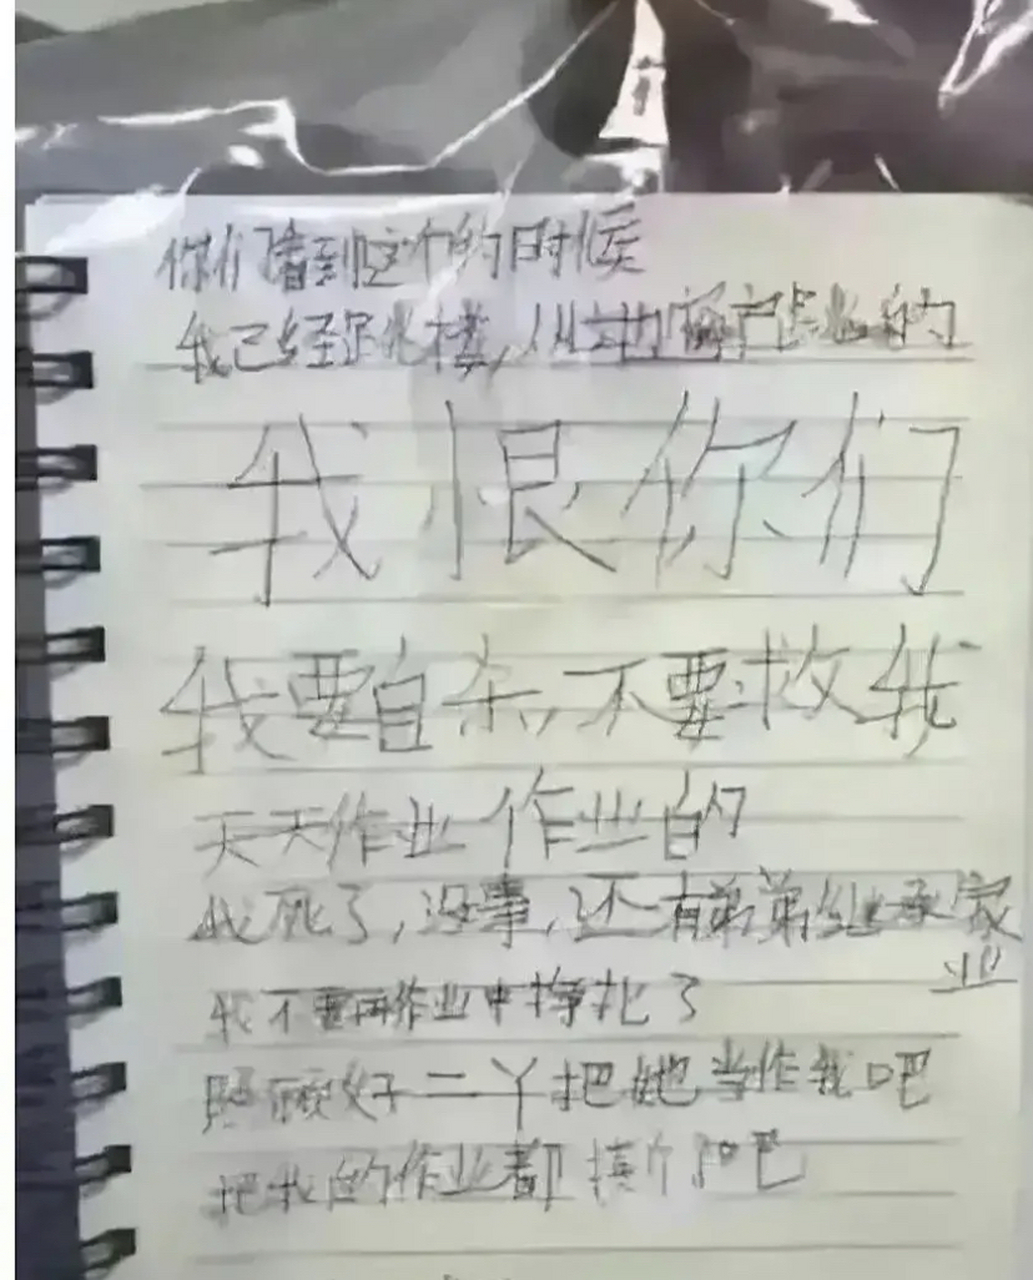 你们看到这个的时候
我已经跳楼,从 窗户 的
我恨你们
我要自杀,不要救我
天天作业作业的
我死了,没事,还有弟弟继承家
业
我不要再作业中挣扎了
照顾好二丫把她当作我吧
把我的作业都 吧